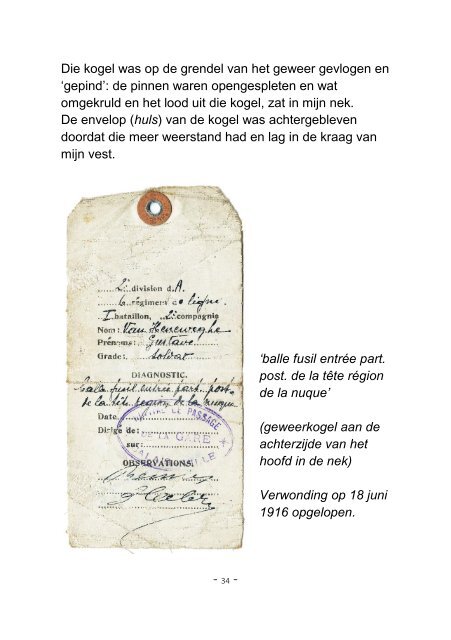 Die kogel was op de grendel van het geweer gevlogen en
‘gepind’: de pinnen waren opengespleten en wat
omgekruld en het lood uit die kogel, zat in mijn nek.
De envelop (huls) van de kogel was achtergebleven
doordat die meer weerstand had en lag in de kraag van
mijn vest.
2e division d.A.
6 régiment de ligne.
I bataillon, 2e compagnie
Nom: Van Heneweghe
Prénoms: Gustave
Grade: soldat
DIAGNOSTIC.
balle fusil entrée part. post.
de la tête région de la nuque
Date
LE PASSAGE
Dirigé de:
DE LA GARE
sur:
OBSERVATIONS:
‘balle fusil entrée part.
post. de la tête région
de la nuque’
(geweerkogel aan de
achterzijde van het
hoofd in de nek)
Verwonding op 18 juni
1916 opgelopen.
- 34 -